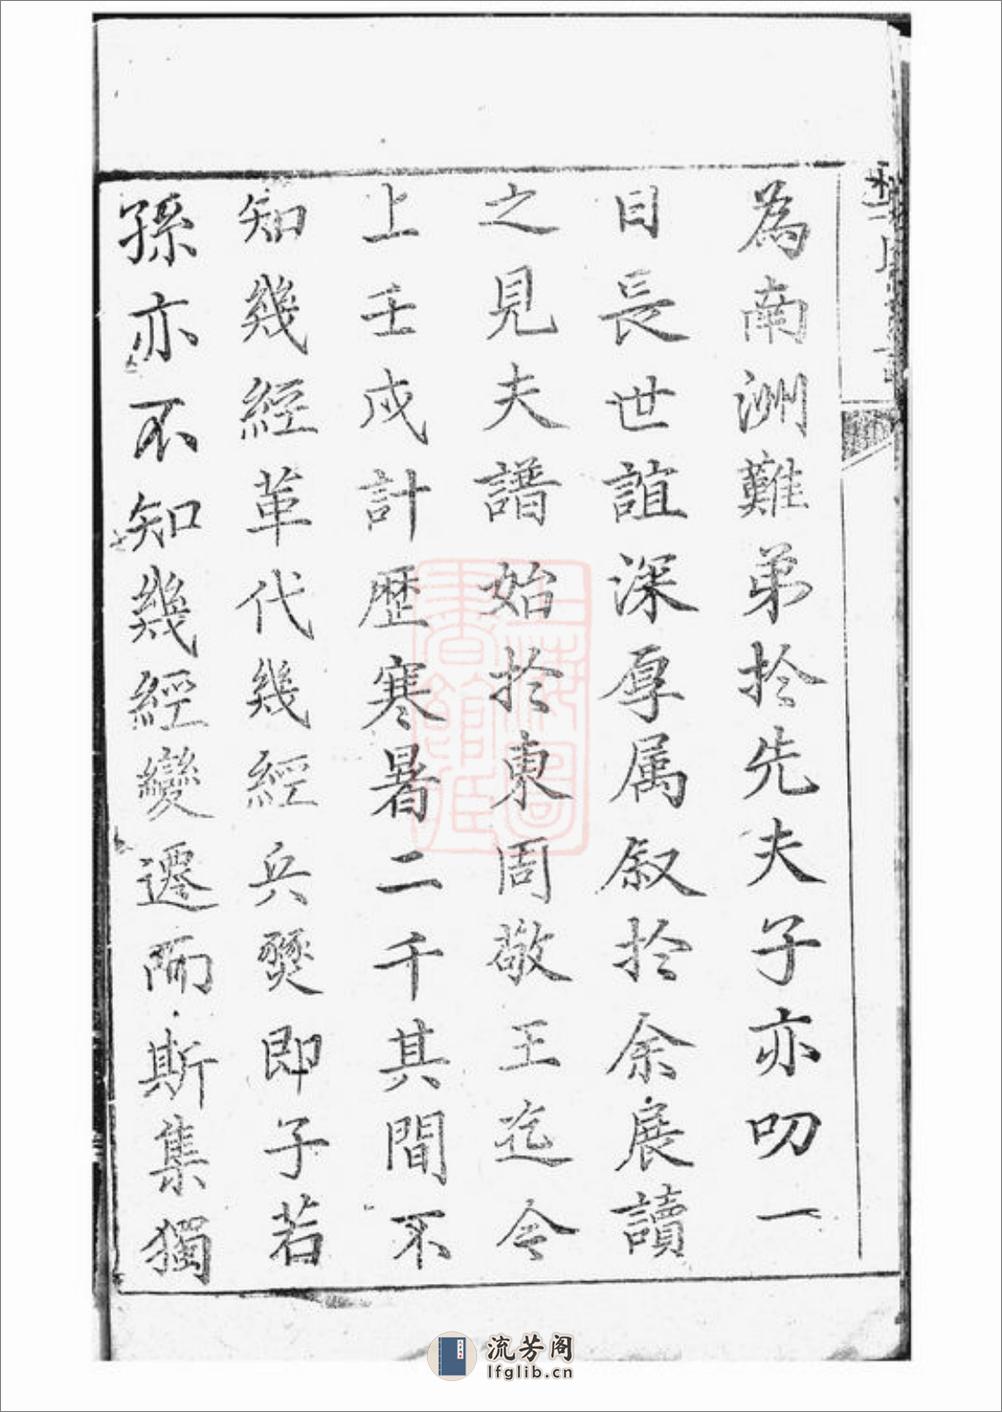 為南洲難弟於先夫子亦叨一
日長世誼深厚属叙於余展讀
之見夫譜始於東周敬王迄今
上壬戌計歷寒暑二千其間不
知幾經革代幾經兵燹即子若
孫亦不知幾經變遷而斯集獨
上海圖書館藏
流芳阁
lfglib.cn